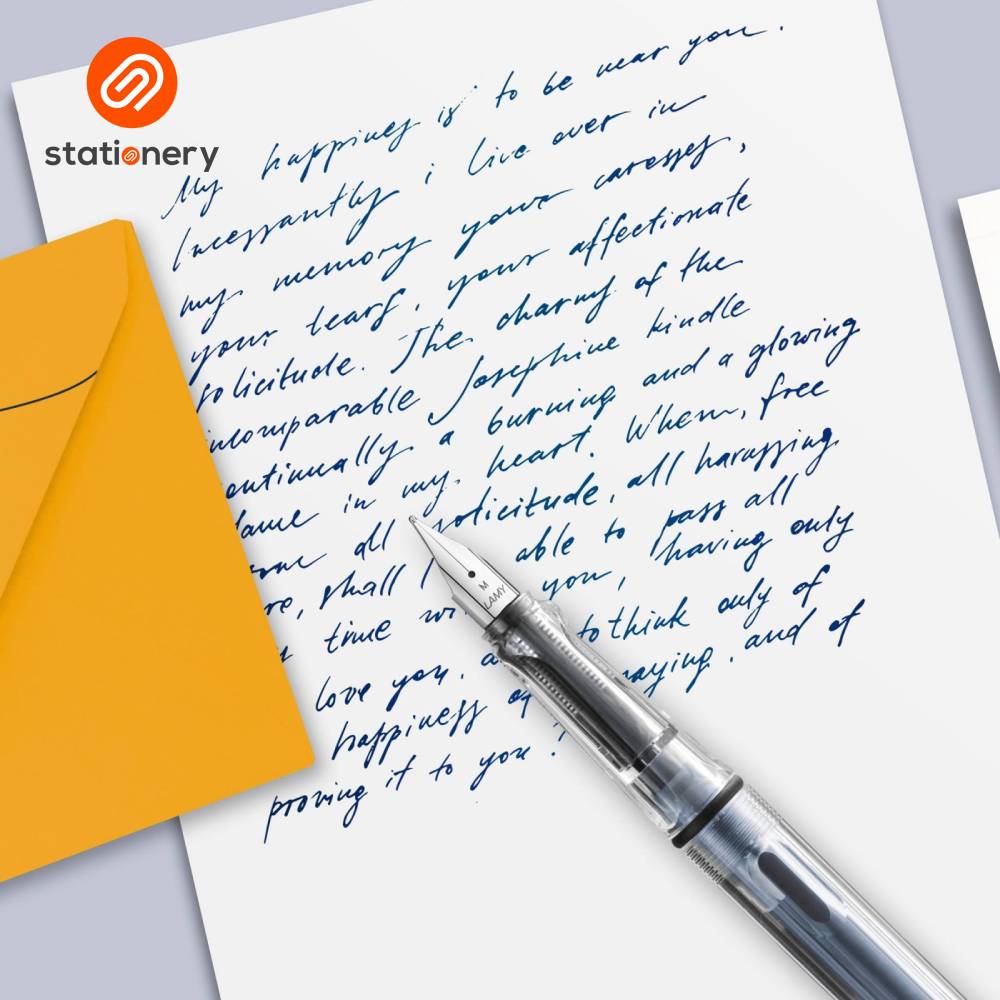 stationery
My happiness is to be near you.
Incessantly i live over in
my memory your caresses,
your tears, your affectionate
solicitude. The charms of the
incomparable Josephine kindle
continually a burning and a glowing
in my heart. When, free
all solicitude, all harassing
shall I able to pass all
time you, having only
love you, to think only of
happiness of and of
proving it to you?
M
LAMY